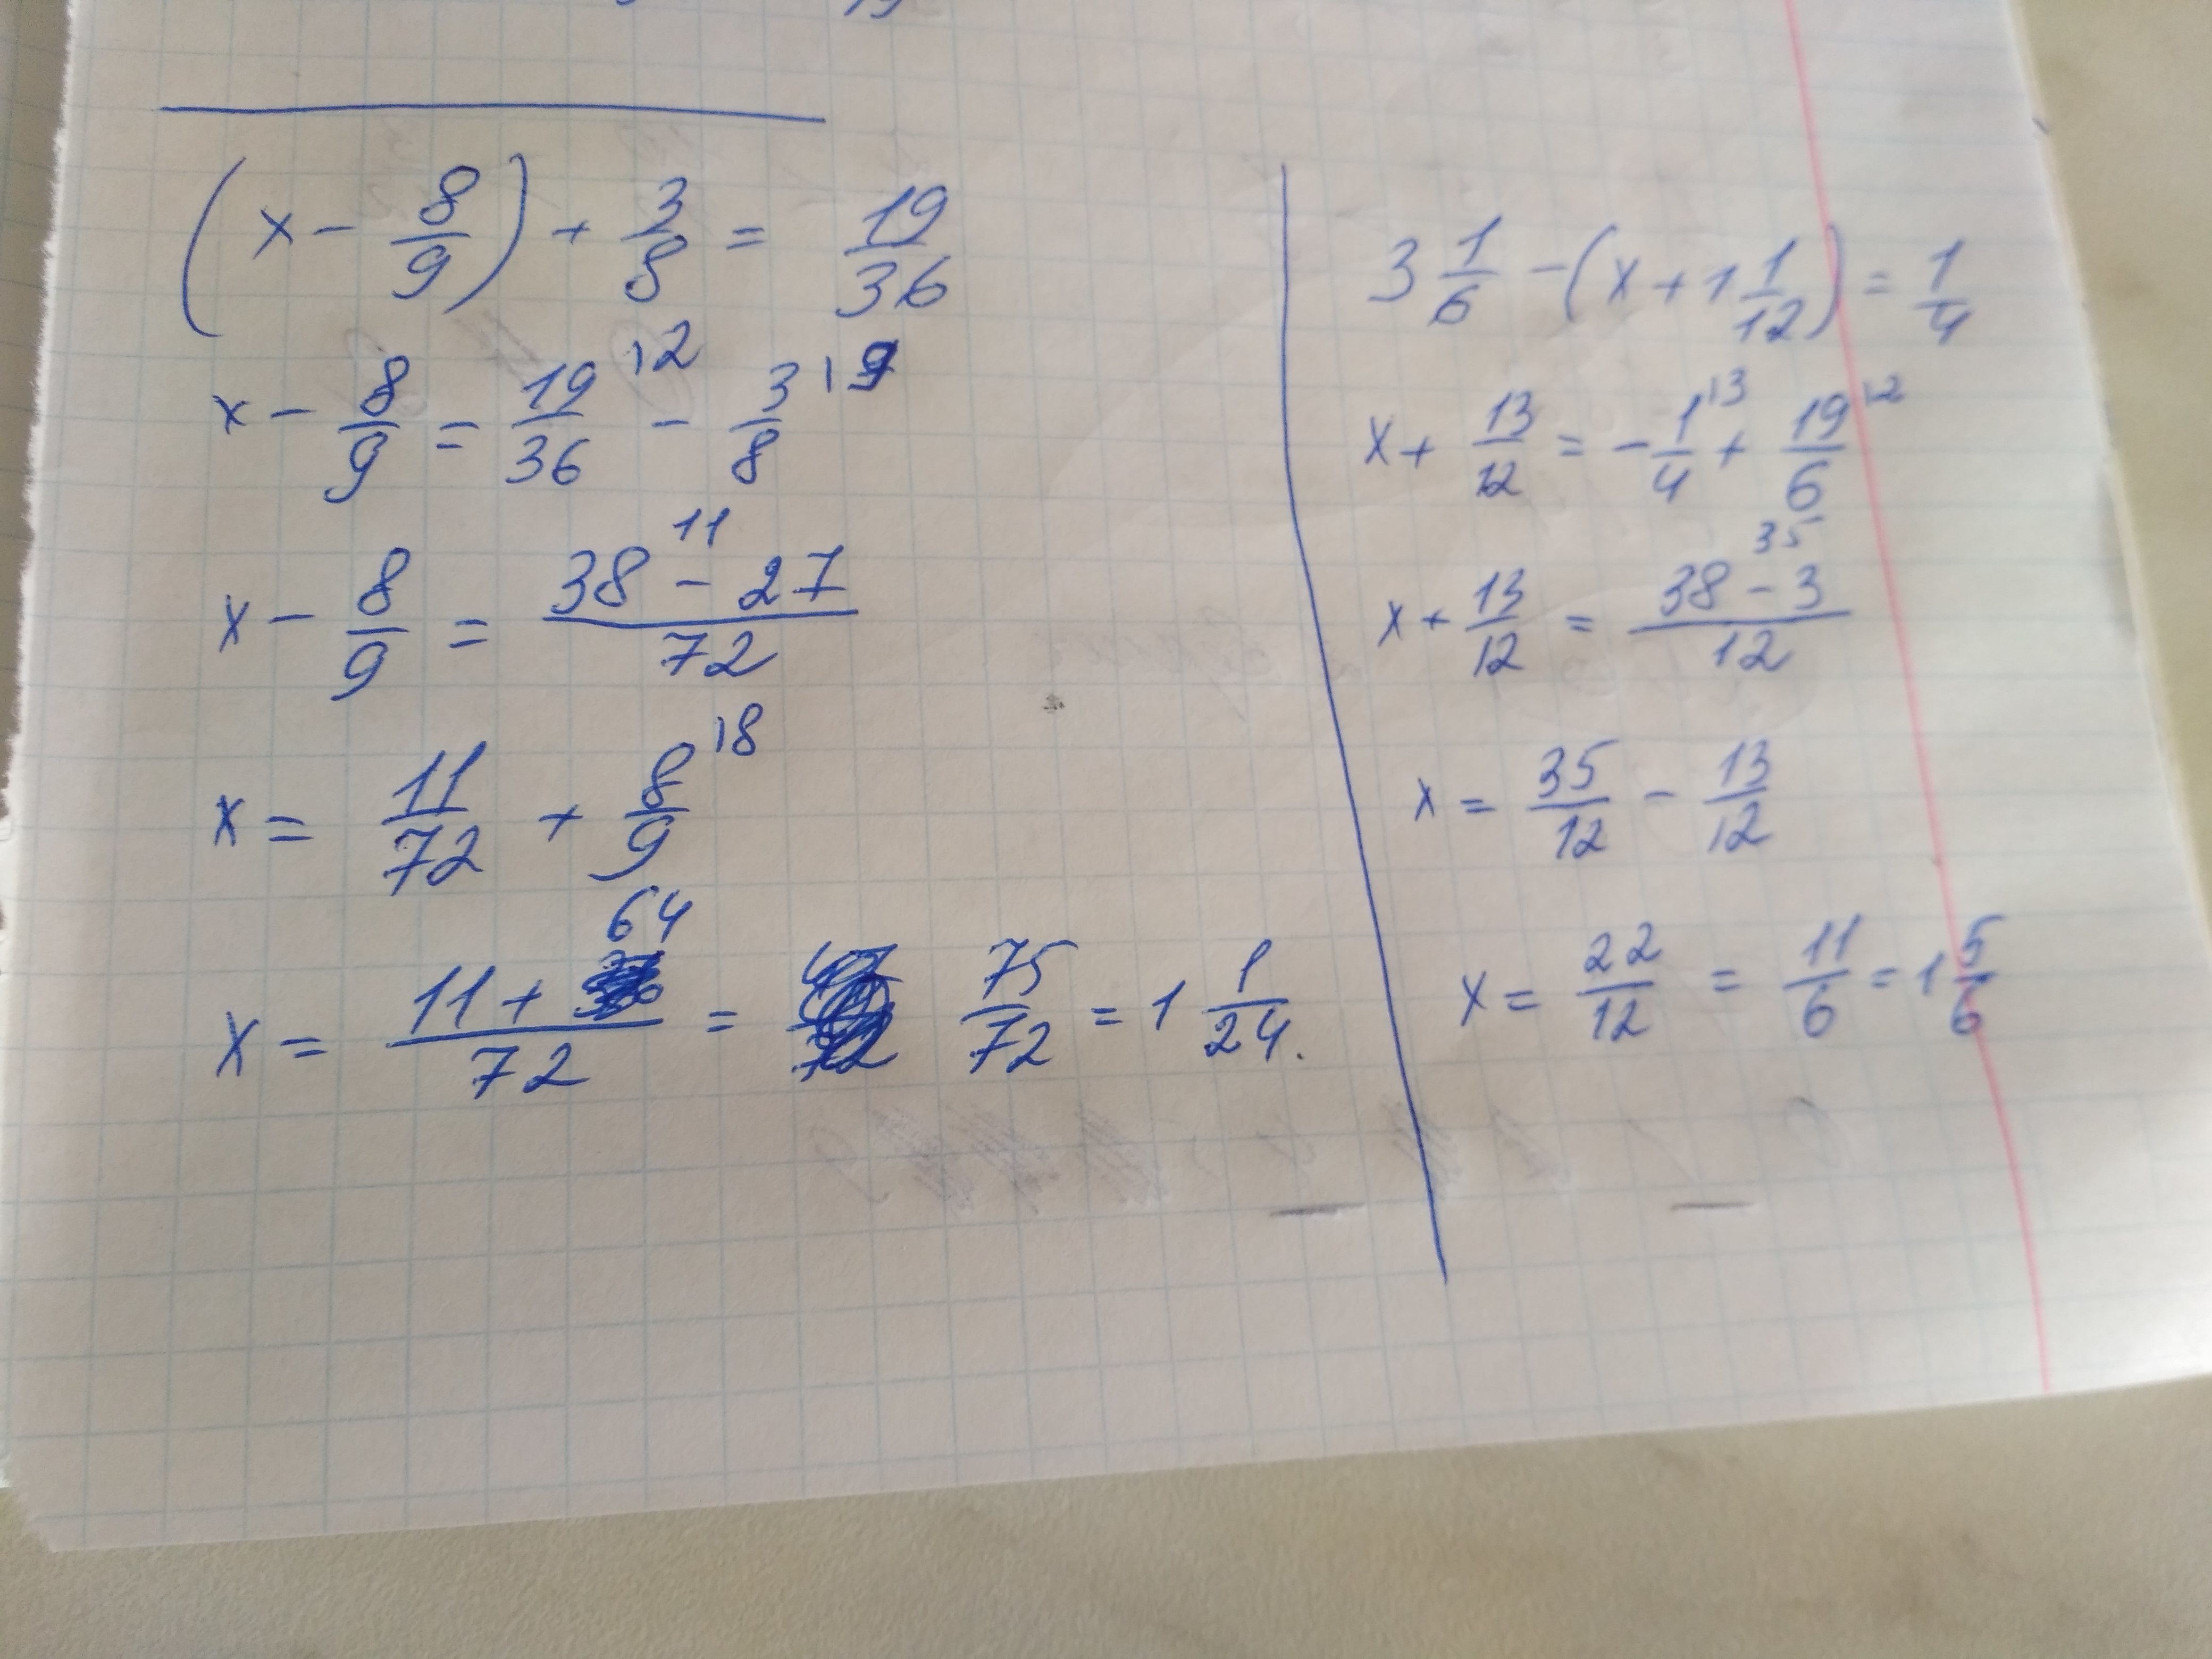 (x - 8/9) + 3/8 = 19/36
x - 8/9 = 19/36 |2 - 3/8 |9
11
x - 8/9 = (38 - 27)/72
x = 11/72 + 8/9 |8
64
x = (11 + )/72 = 75/72 = 1 1/24.
3 1/6 - (x + 1 1/12) = 1/4
x + 13/12 = - 1/4 |3 + 19/6 |2
35
x + 13/12 = (38 - 3)/12
x = 35/12 - 13/12
x = 22/12 = 11/6 = 1 5/6